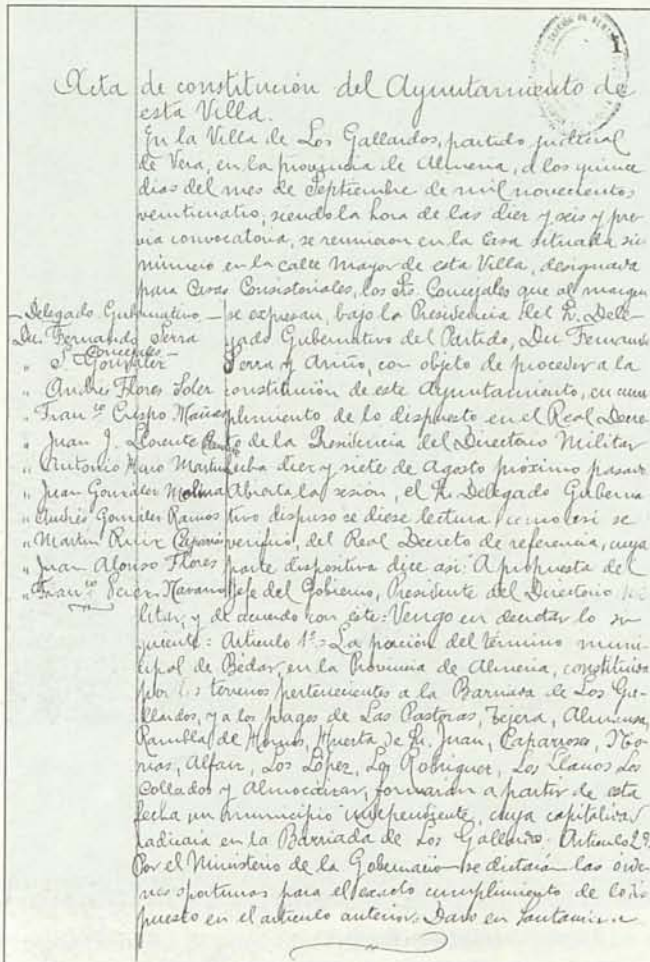 Acta de constitución del Ayuntamiento de
esta Villa.
En la Villa de Los Gallardos, partido judicial
de Vera, en la provincia de Almería, a los quince
dias del mes de Septiembre de mil novecientos
veinticuatro, siendo la hora de las diez y seis y pre-
via convocatoria, se reunieron en la Casa situada sin
número en la calle Mayor de esta Villa, designada
para Casas Consistoriales, los Sres. Concejales que al margen
se expresan, bajo la Presidencia del Sr. Dele-
gado Gubernativo del Partido, Don Fernando
Serra y Ariño, con objeto de proceder a la
constitución de este Ayuntamiento, en cum
plimiento de lo dispuesto en el Real Decre
to de la Presidencia del Directorio Militar
fecha diez y siete de Agosto próximo pasado
Abierta la sesión, el Sr. Delegado Guberna
tivo dispuso se diese lectura, como asi se
verificó, del Real Decreto de referencia, cuya
parte dispositiva dice asi: A propuesta del
Jefe del Gobierno, Presidente del Directorio Mi
litar, y de acuerdo con éste: Vengo en decretar lo si
guiente: Artículo 1º = La porción del término muni-
cipal de Bédar, en la Provincia de Almería, constituida
por los terrenos pertenecientes a la Barriada de Los Ga-
llardos, y a los pagos de Las Pastoras, Tejera,
Rambla de Huerta de Juan, Caparroses,
Alfaix, Los López, Los Rodriguez, Los Llanos Los
Collados y Almocáizar, formarán a partir de esta
fecha un municipio independiente, cuya capitalidad
radicará en la Barriada de Los Gallardos. Artículo 2º
Por el Ministerio de la Gobernación se dictarán las orde
nes oportunas para el exacto cumplimiento de lo dis
puesto en el artículo anterior. Dado en Santander a
Delegado Gubernativo
Don Fernando Serra
Concejales
" S. González
" Andrés Flores Soler
" Franco Crespo Mañas
" Juan J. Llorente
" Antonio Haro Martinez
" Juan González Molina
" Andrés González Ramos
" Martin Ruiz Caparrós
" Juan Alonso Flores
" Franco Navarro